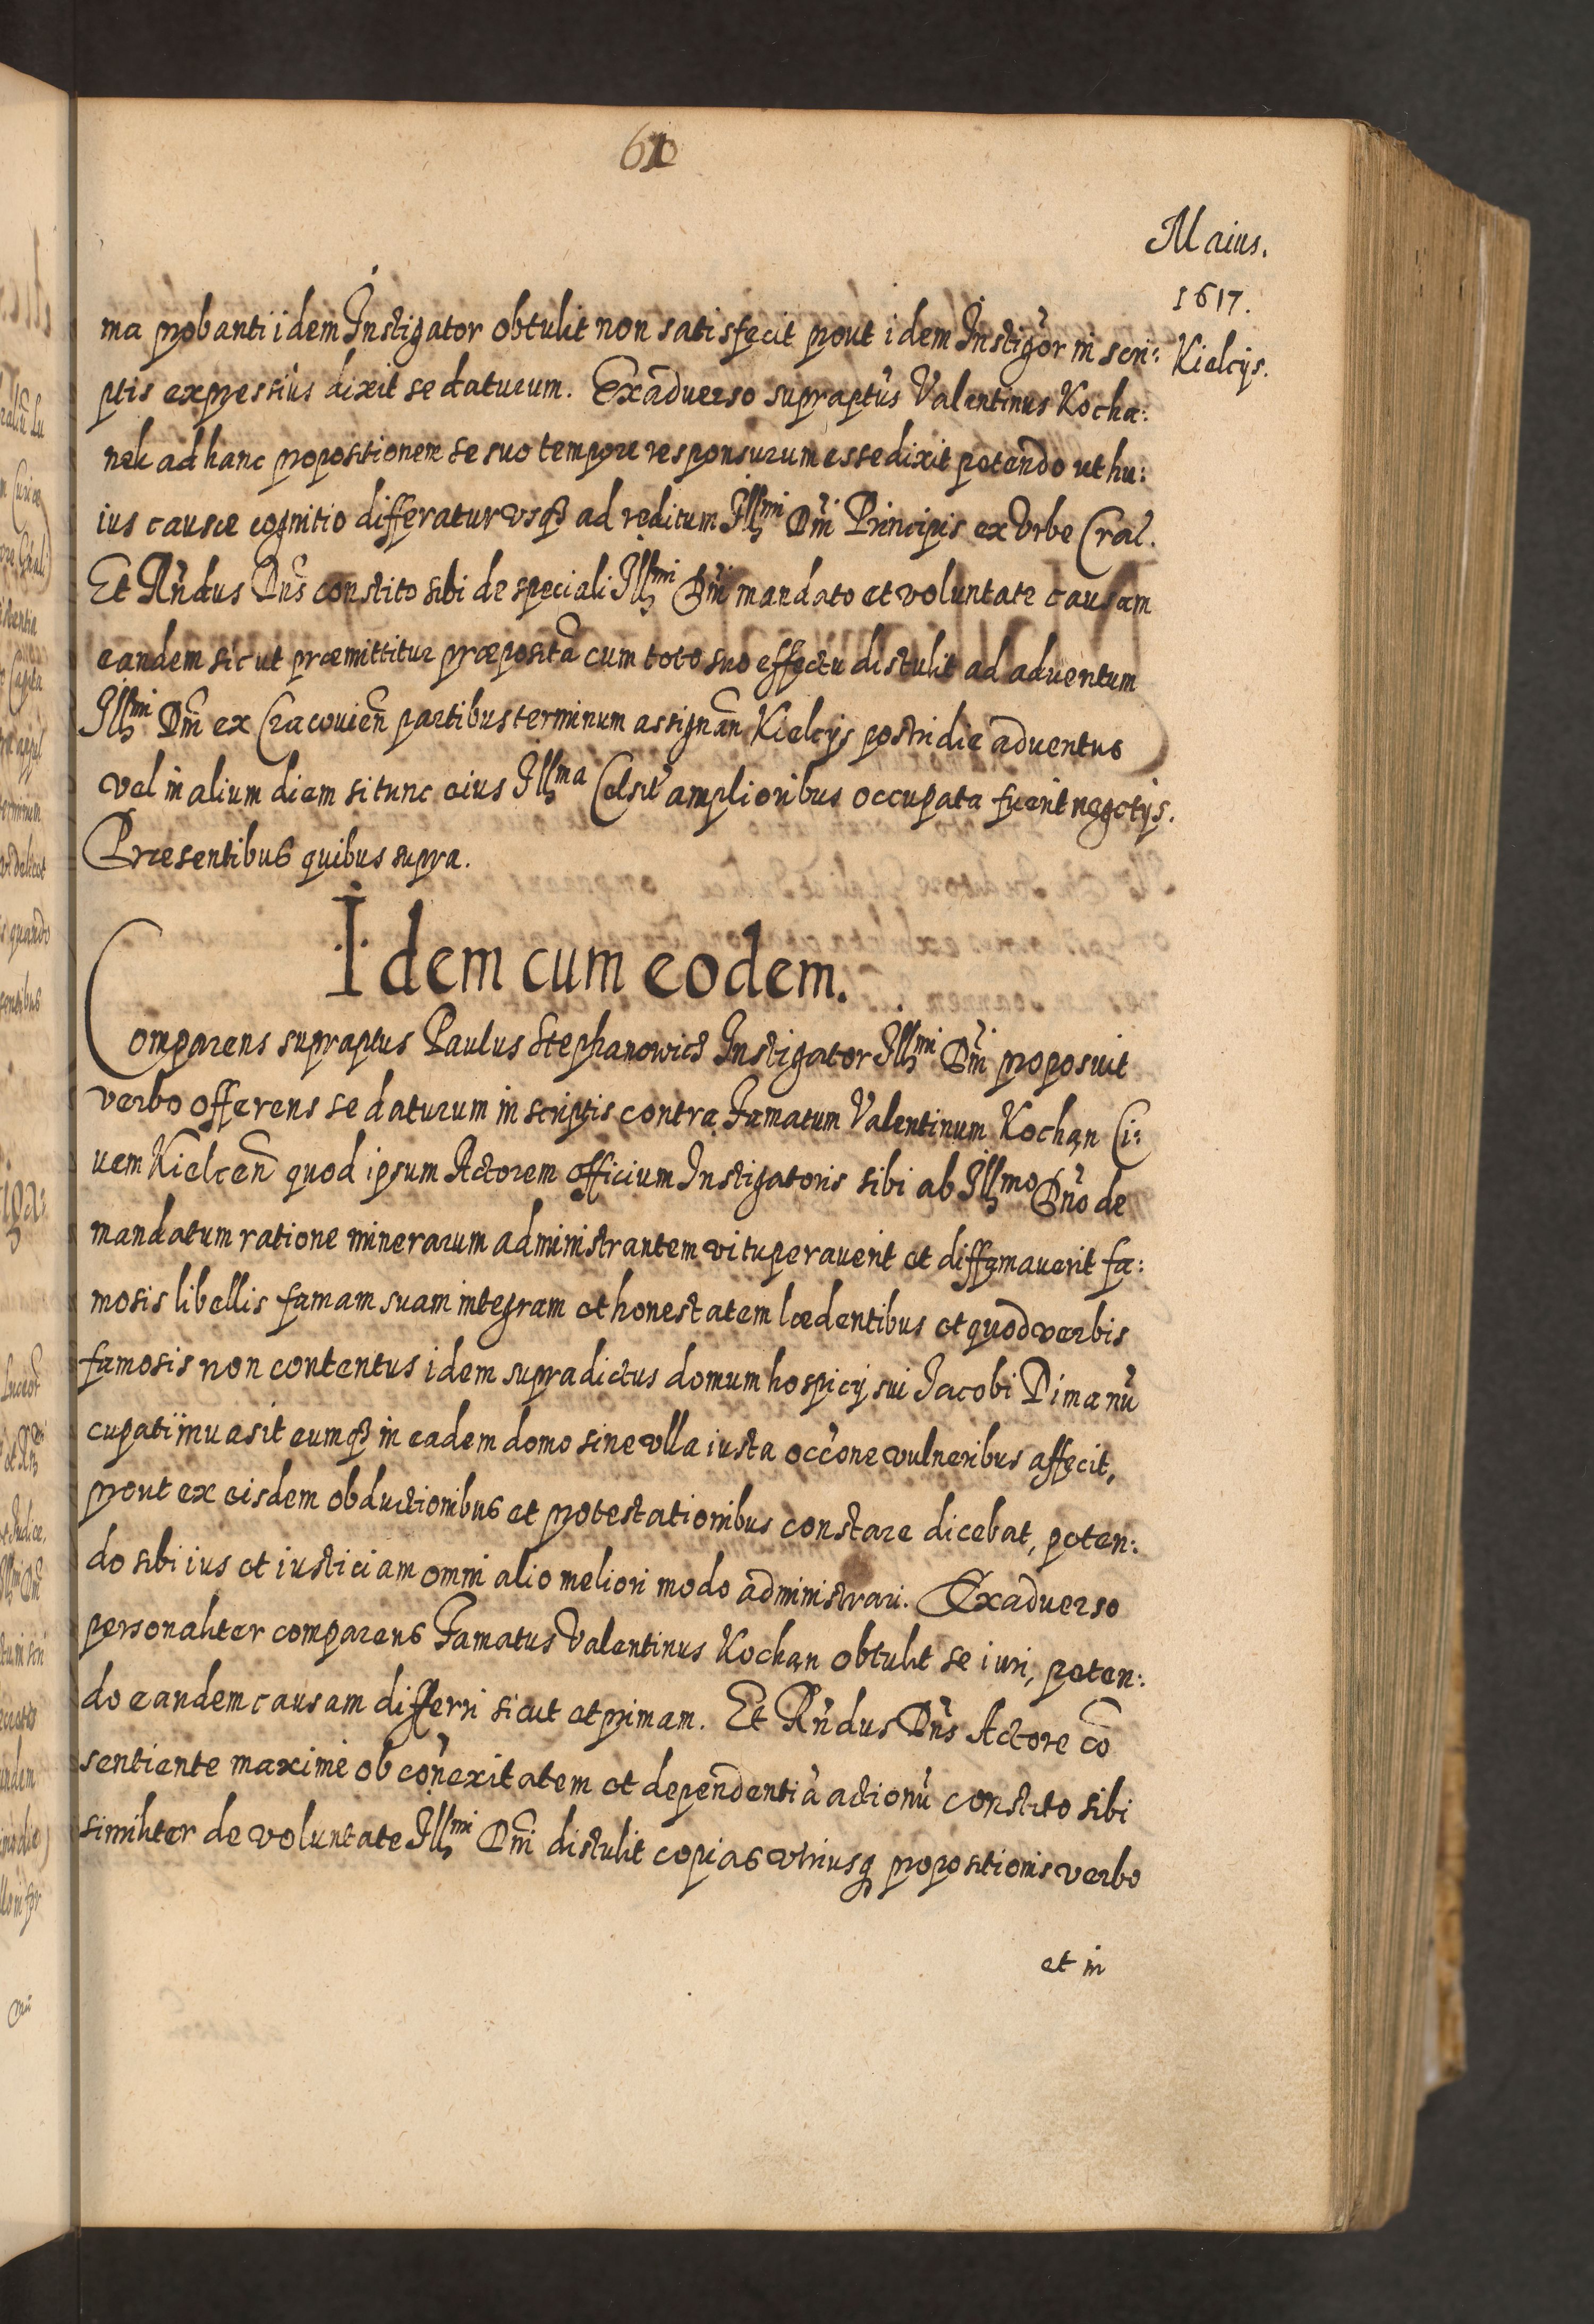 61
Maius.
1617.
Kielcijs.
ma probanti idem Instigator obtulit non satisfecit prout idem Instigor in scri:
ptis expressius dixit se daturum. Exaduerso supraptus Valentinus Kocha:
nek ad hanc propositionem se suo tempore responsurum esse dixit petendo ut hu:
ius causæ cognitio differatur vsq3 ad reditum Illmi Dni Principis ex Vrbe Cral.
Et Rndus Dns constito sibi de speciali Illmi Dni mandato et voluntate causam
eandem sicut præmittitur præposita cum toto suo effectu distulit ad aduentum
Illmi Dni ex Cracouien partibus terminum assignan Kielcijs postridie aduentus
vel in alium diem si tunc eius Illma Celsit amplioribus occupata fuerit negotijs.
Præsentibus quibus supra.
Idem cum eodem.
Comparens supraptus Paulus Stephanowicz Instigator Illmi Dni proposuit
verbo offerens se daturum in scriptis contra Famatum Valentinum Kochan Ci:
uem Kielcen quod ipsum Actorem officium Instigatoris sibi ab Illmo Dno de
mandatum ratione minerarum administrantem vituperauerit et diffamauerit fa:
mosis libellis famam suam integram et honestatem lædentibus et quod verbis
famosis non contentus idem supradictus domum hospicij sui Jacobi Dima nu
cupati inuasit eumq3 in eadem domo sine vlla iusta occone vulneribus affecit,
prout ex eisdem obductionibus et protestationibus constare dicebat, peten:
do sibi ius et iusticiam omni alio meliori modo administrari. Exaduerso
personaliter comparens Famatus Valentinus Kochan obtulit se iuri, peten:
do eandem causam differri sicut et primam. Et Rndus Dns Actore co
sentiente maxime ob conexitatem et dependentia actionu constito sibi
similiter de voluntate Illmi Dni distulit copias vtriusq propositionis verbo
et in